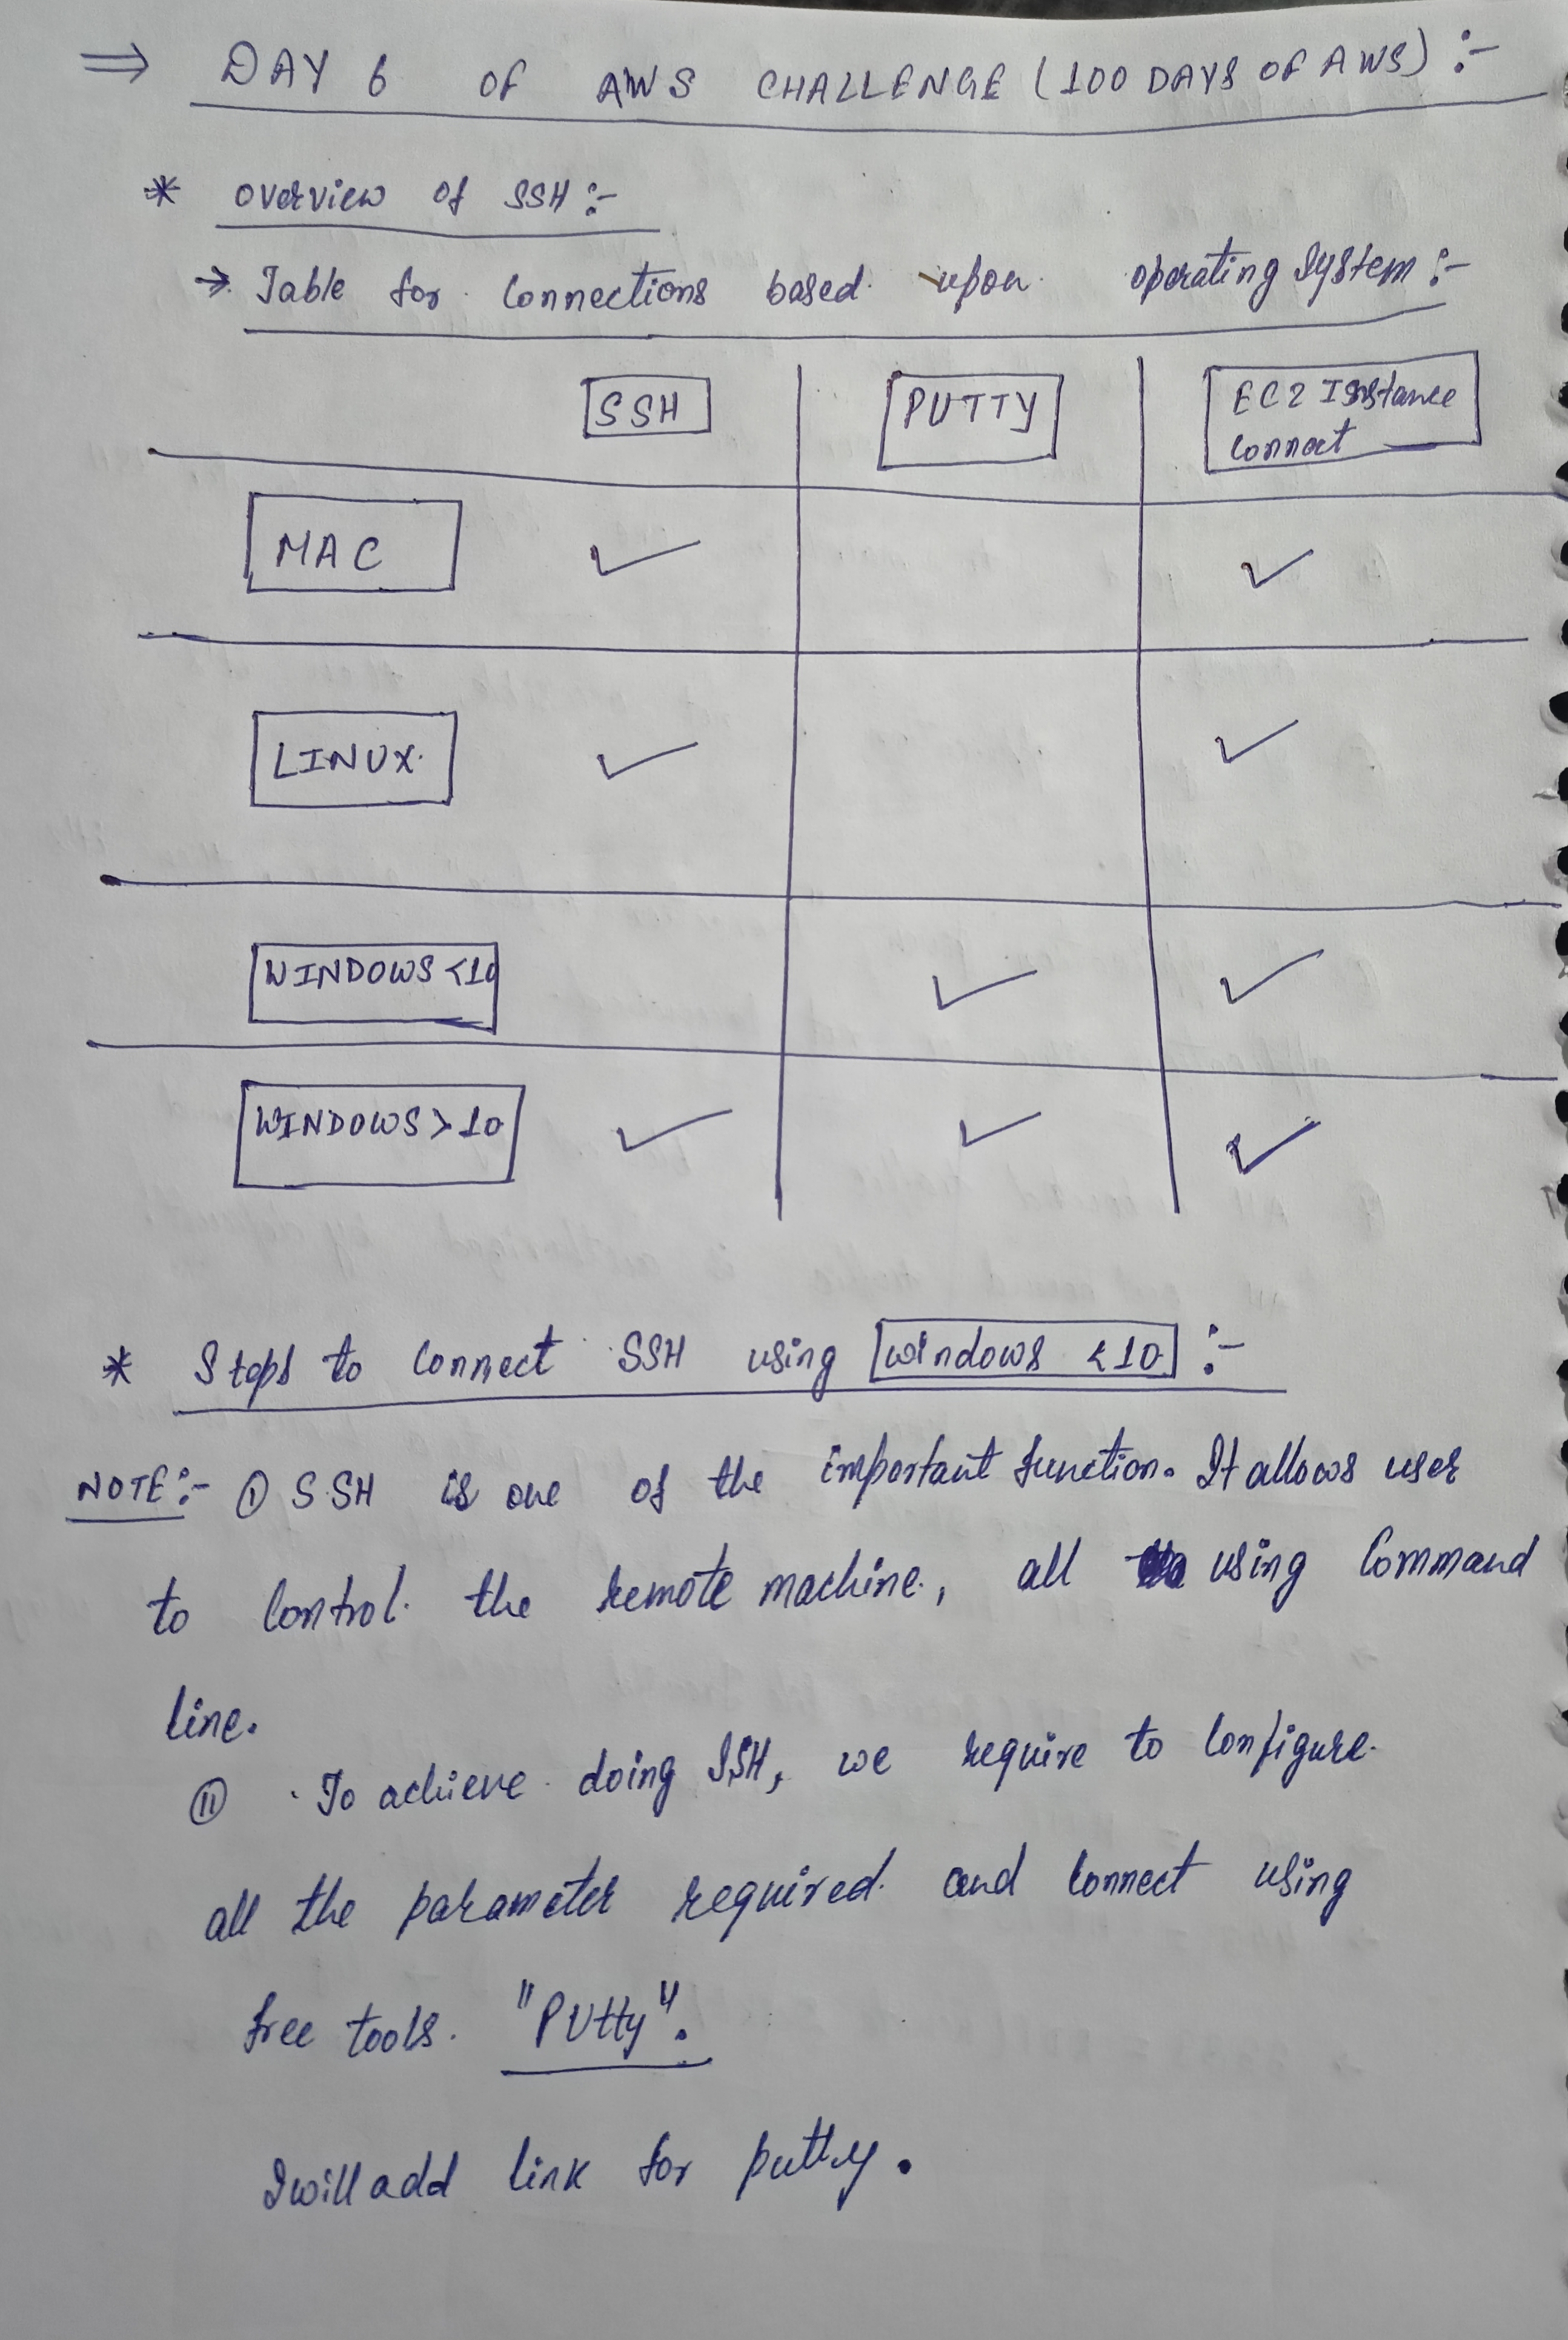 ⇒ DAY 6 OF AWS CHALLENGE (100 DAYS OF AWS) :-
* Overview of SSH :-
→ Table for Connections based upon operating System :-
SSH PUTTY EC2 Instance Connect
MAC ✓ ✓
LINUX ✓ ✓
WINDOWS <10 ✓ ✓
WINDOWS >10 ✓ ✓ ✓
* Steps to Connect SSH using Windows <10 :-
NOTE :- (I) SSH is one of the important function. It allows user
to Control the remote machine, all using Command
line.
(II) To achieve doing SSH, we require to Configure
all the parameter required and Connect using
free tools. "PUtty".
I will add link for putty.